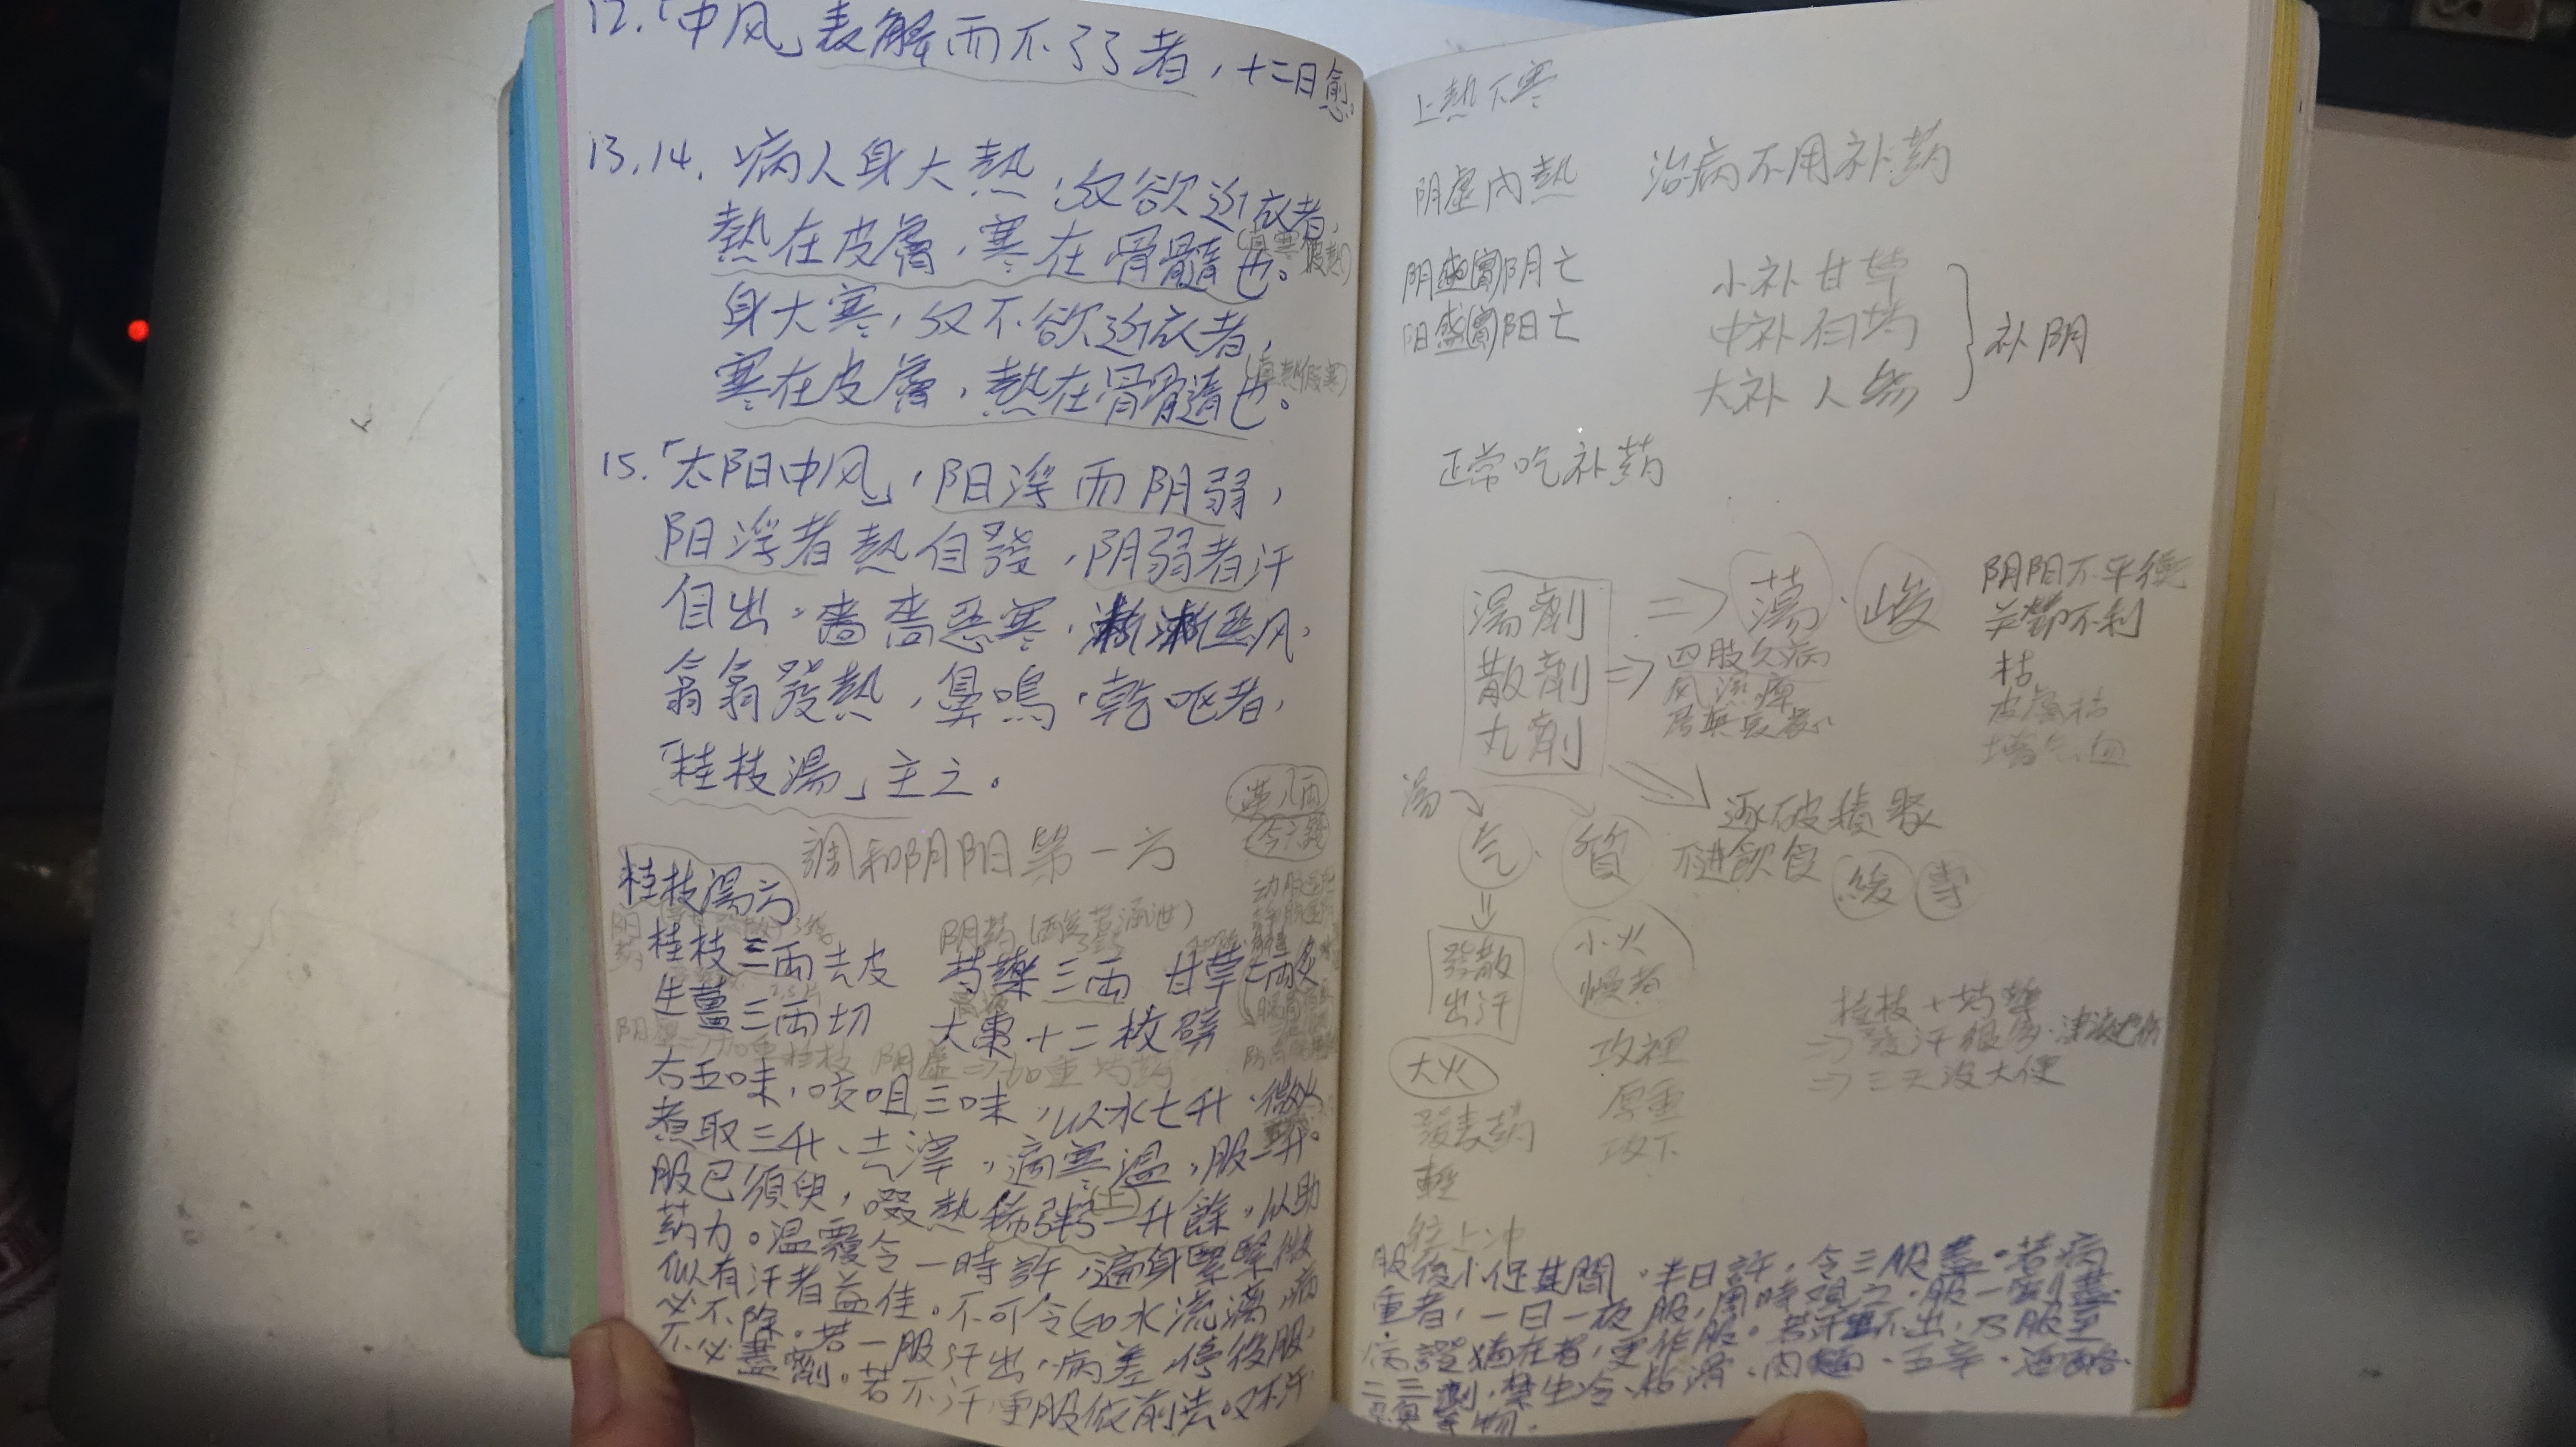 12.「中风」表解而不了了者，十二日愈。
13,14. 病人身大熱，反欲近衣者，
熱在皮膚，寒在骨髓也。(真寒假熱)
身大寒，反不欲近衣者，
寒在皮膚，熱在骨髓也。(真熱假寒)
15.「太阳中风」，阳浮而阴弱，
阳浮者熱自發，阴弱者汗
自出。嗇嗇惡寒，淅淅惡风，
翕翕發熱，鼻鳴，乾呕者，
「桂枝湯」主之。
漢一兩
今一錢
調和阴阳第一方
桂枝湯方
阴药
桂枝三兩去皮 芍藥三兩 甘草二兩炙
生薑三兩切 大棗十二枚劈
加重桂枝 阴虛⇒加重芍药
右五味，咬咀三味，以水七升，微火
煮取三升，去滓，適寒温，服一升。
服已須臾，啜熱稀粥一升餘，以助
药力。温覆令一時許，遍身漐漐微
似有汗者益佳。不可令如水流漓，病
必不除。若一服汗出，病差，停後服，
不必盡劑。若不汗，更服依前法。又不汗
上熱下寒
阴虛內熱 治病不用补药
阴盛(實)阴亡
阳盛(實)阳亡
小补 甘草
中补 白芍
大补 人参
补阴
正常吃补药
湯劑 ⇒ 蕩．峻
散劑 ⇒ 四肢久病
风濕痺
丸劑
阴阳不平衡
关節不利
枯
皮膚枯
逐破積聚
不進飲食 緩 專
湯
气、質
發散
出汗
小火
慢煮
大火
攻裡
發表药
厚重
輕
攻下
往上冲
桂枝+芍藥
⇒發汗很多，津液已伤
⇒三天沒大便
服後小促其間，半日許，令三服盡。若病
重者，一日一夜服，周時觀之，服一劑盡，
病證猶在者，更作服。若汗不出，乃服至
二三劑，禁生冷、粘滑、肉麵、五辛、酒酪、
惡臭等物。